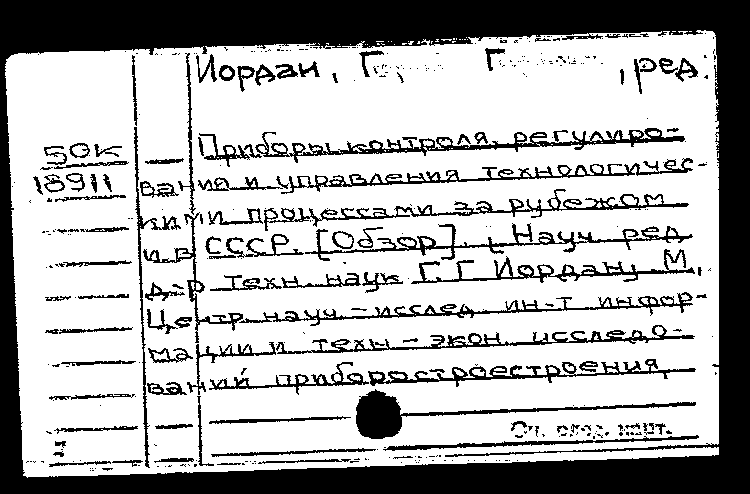 Иордан, Г Г , ред.
50К
18911
Приборы контроля, регулиро-
вания и управления технологичес-
кими процессами за рубежом
и в СССР. [Обзор]. [Науч. ред
д-р техн. наук Г. Г Иордан] М.,
Центр. науч.-исслед. ин-т инфор-
мации и техн-экон. исследо-
ваний приборостроестроения,
См. след. карт.